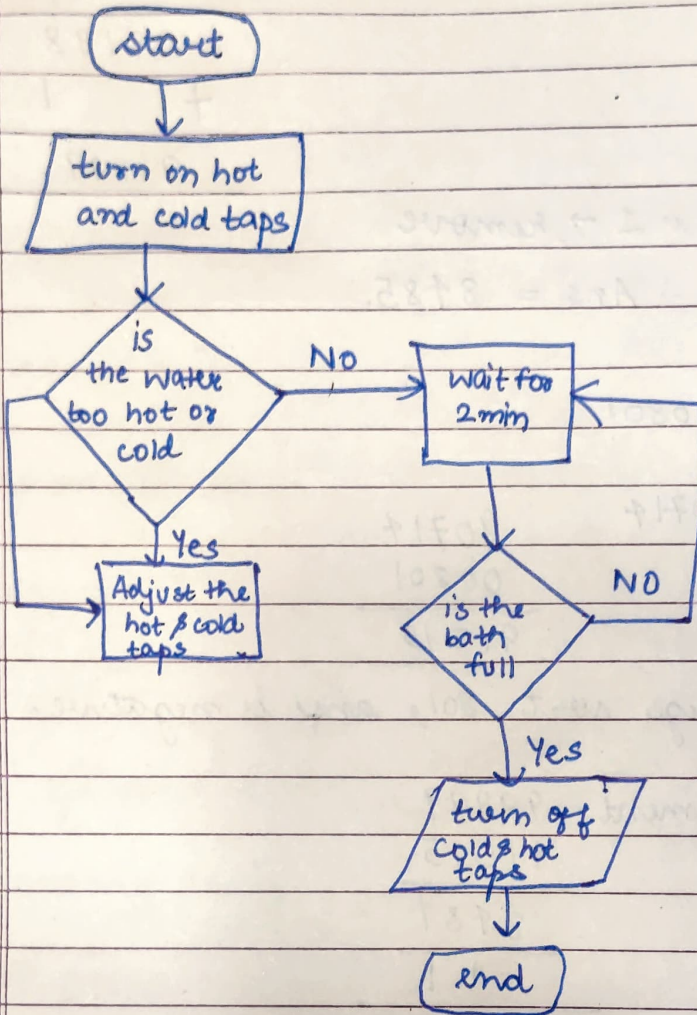 start
turn on hot
and cold taps
is
the water
too hot or
cold
NO
wait for
2min
Yes
Adjust the
hot & cold
taps
is the
bath
full
NO
Yes
turn off
cold & hot
taps
end